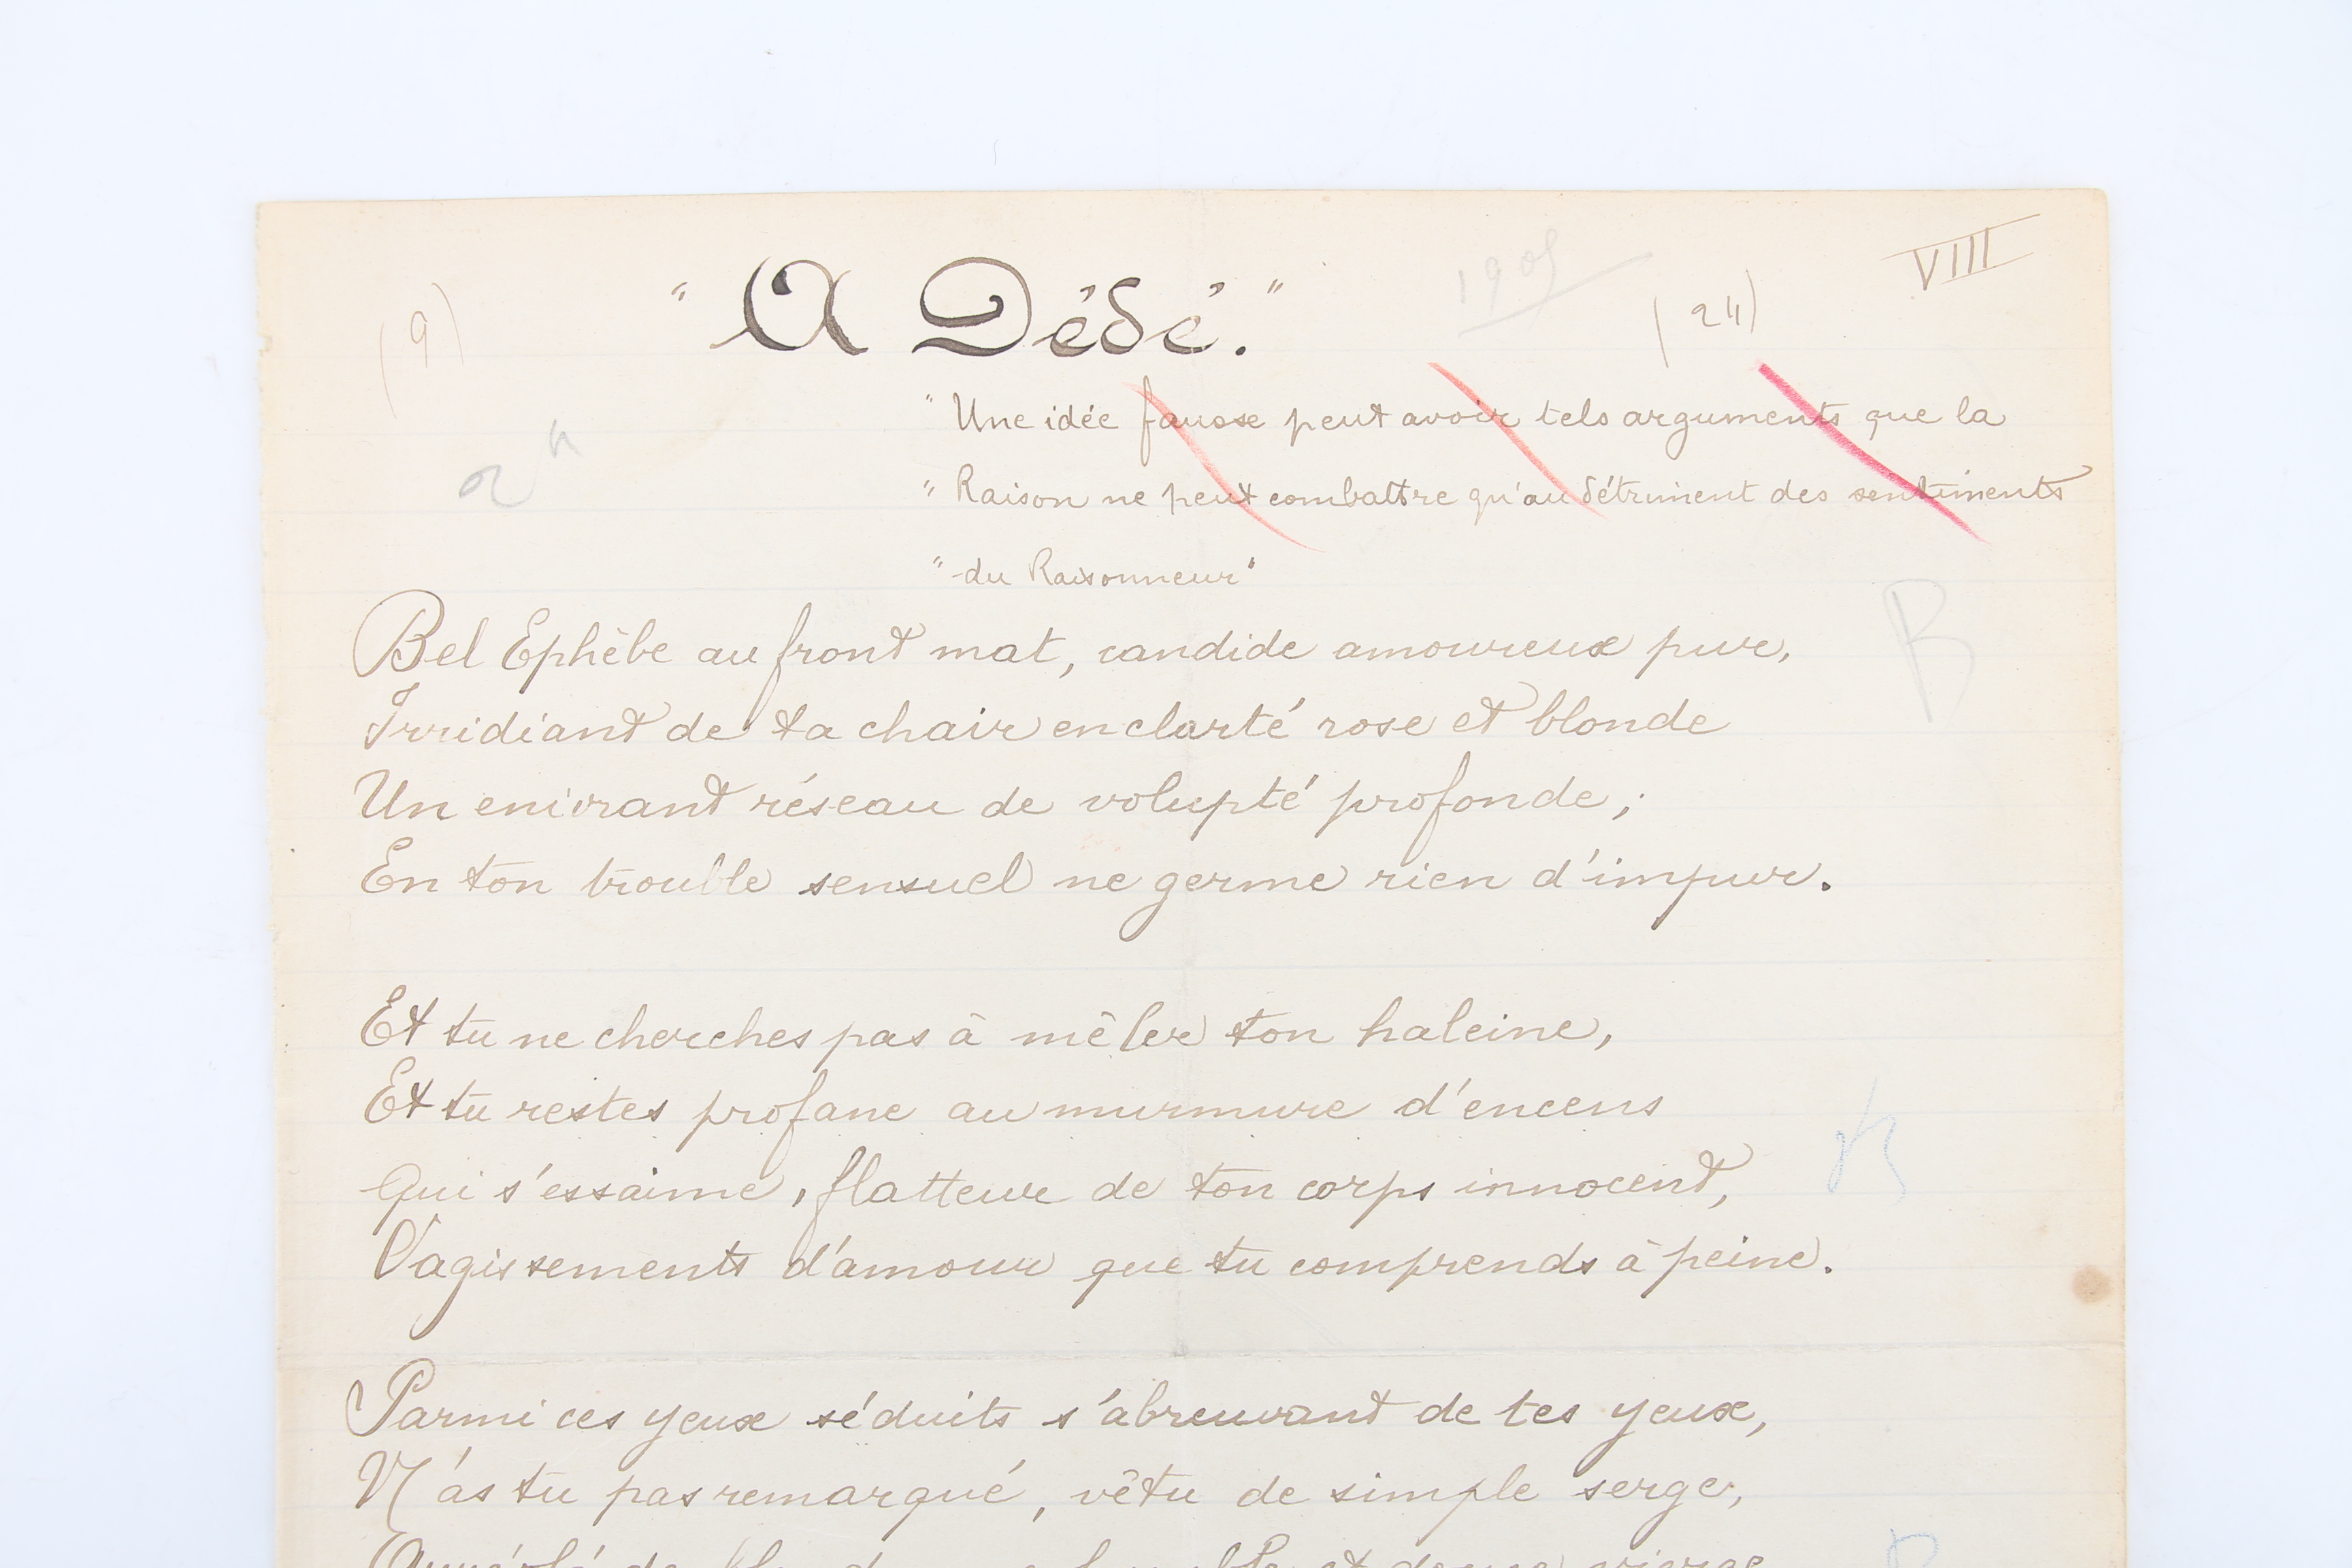 VIII
1905
(9)
" A Dédé. "
(24)
" Une idée fausse peut avoir tels arguments que la
" Raison ne peut combattre qu'au détriment des sentiments
" du Raisonneur "
B
Bel Ephèbe au front mat, candide amoureux pur,
Irridiant de ta chair en clarté rose et blonde
Un enivrant réseau de volupté profonde ;
En ton trouble sensuel ne germe rien d'impur.
Et tu ne cherches pas à mêler ton haleine,
Et tu restes profane au murmure d'encens
Qui s'essaime, flatteur de ton corps innocent,
Vagissements d'amour que tu comprends à peine.
Parmi ces yeux séduits s'abreuvant de tes yeux,
N'as tu pas remarqué, vêtu de simple serge,